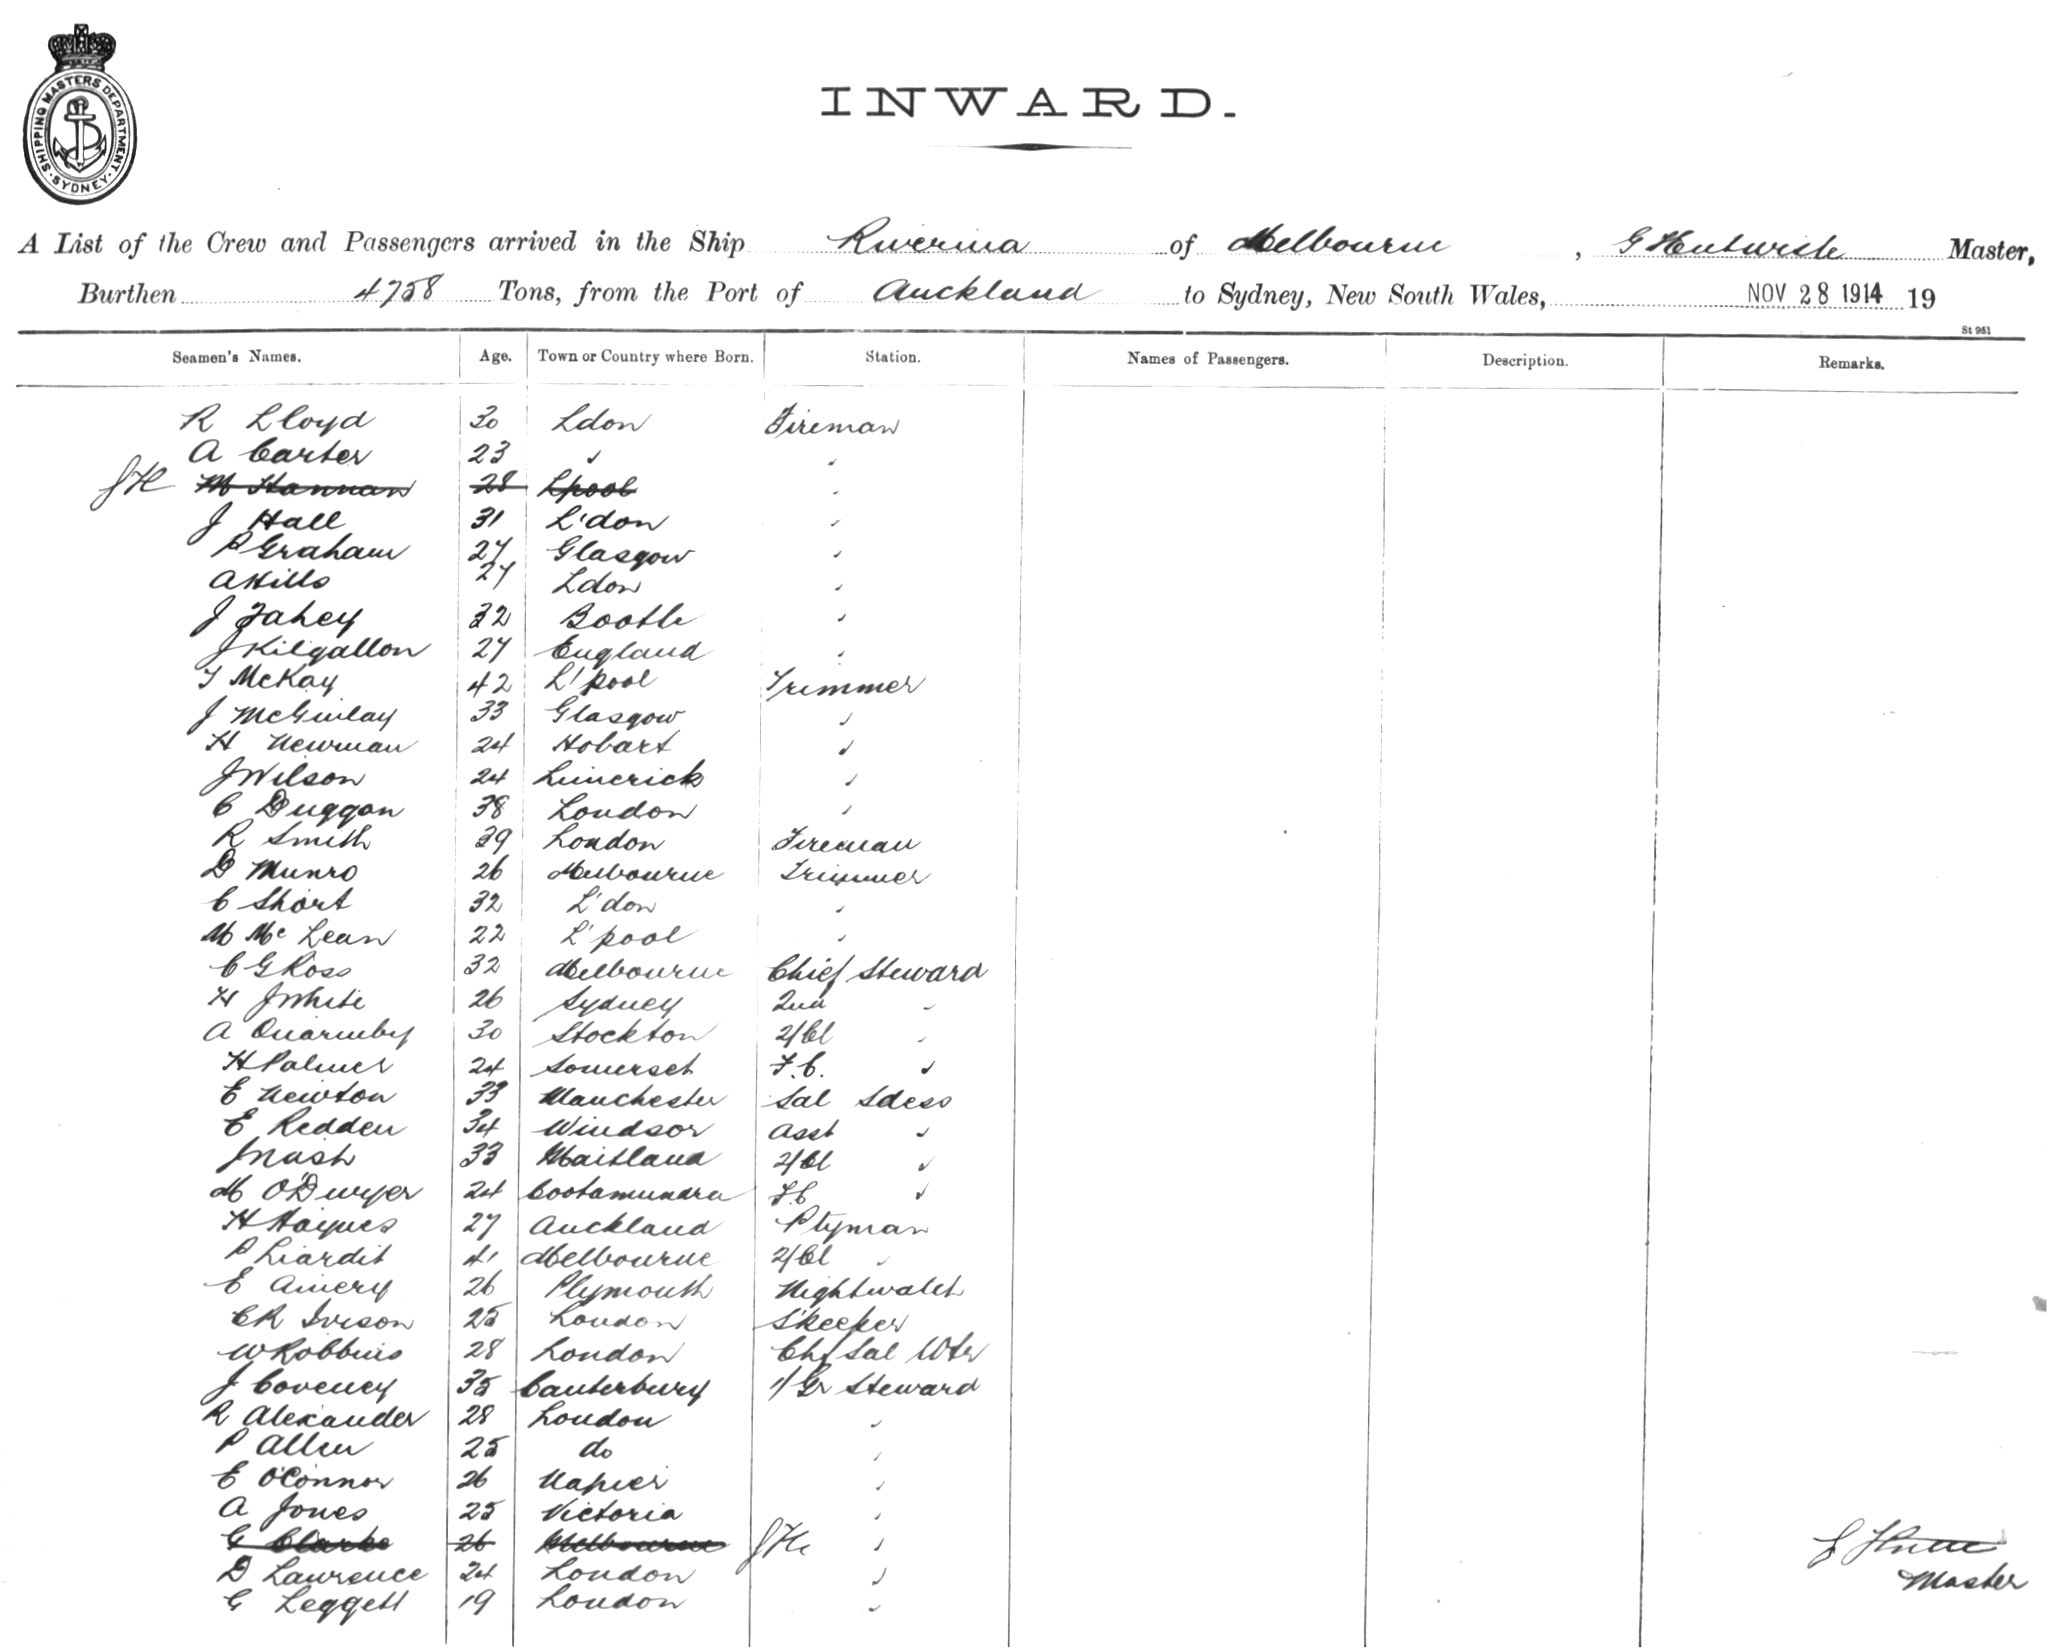 SHIPPING MASTERS DEPARTMENT · SYDNEY ·
INWARD.
A List of the Crew and Passengers arrived in the Ship Riverina of Melbourne, G Entwisle Master,
Burthen 4758 Tons, from the Port of Auckland to Sydney, New South Wales, NOV 28 1914 19
St 951
Seamen's Names. Age. Town or Country where Born. Station. Names of Passengers. Description. Remarks.
R Lloyd 30 Ldon Fireman
A Carter 23 "  "
M Hannan 28 Lpool "
J Hall 31 L'don "
P Graham 27 Glasgow "
A Hills 27 Ldon "
J Fahey 32 Bootle "
J Kilgallon 27 England "
T McKay 42 L'pool Trimmer
J McGinlay 33 Glasgow "
H Newman 24 Hobart "
J Wilson 24 Limerick "
C Duggan 38 London "
R Smith 39 London Fireman
D Munro 26 Melbourne Trimmer
C Short 32 L'don "
M McLean 22 L'pool "
C G Ross 32 Melbourne Chief Steward
H J White 26 Sydney 2nd "
A Quarmby 30 Stockton 2/Cl "
H Palmer 24 Somerset F.C. "
E Newton 33 Manchester Sal Sdess
E Redden 34 Windsor Asst "
J Nash 33 Maitland 2/Cl "
M O'Dwyer 24 Cootamundra F.C "
H Haynes 27 Auckland Ptyman
P Liardit 41 Melbourne 2/Cl "
E Amery 26 Plymouth Nightwatch
C R Iveson 25 London S'keeper
W Robbins 28 London Chf Sal Wtr
J Coveney 35 Canterbury 1/Gr Steward
R Alexander 28 London "
P Allen 25 do "
E O'Connor 26 Napier "
A Jones 25 Victoria "
G Clarke 26 Melbourne "
D Lawrence 24 London "
Master
G Leggett 19 London "